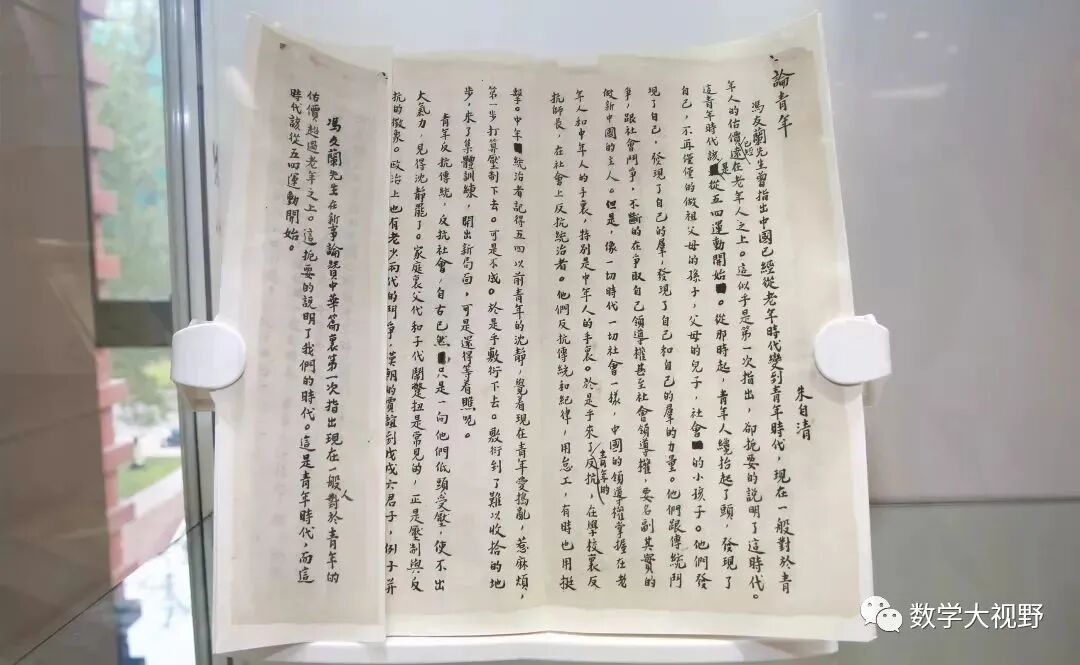 論青年
朱自清
馮友蘭先生曾指出中國已經從老年時代變到青年時代,現在一般對於青
年人的估價已超在老年人之上。這似乎是第一次指出,卻扼要的說明了這時代。
這青年時代該是從五四運動開始。從那時起,青年人纔抬起了頭,發現了
自己,不再僅僅的做祖父母的孫子,父母的兒子,社會的小孩子。他們發
現了自己,發現了自己的羣,發現了自己和自己的羣的力量。他們跟傳統鬥
爭,跟社會鬥爭,不斷的在爭取自己領導權甚至社會領導權,要名副其實的
做新中國的主人。但是,像一切時代一切社會一樣,中國的領導權掌握在老
年人和中年人的手裏,特別是中年人的手裏。於是乎來了青年的反抗,在學校裏反
抗師長,在社會上反抗統治者。他們反抗傳統和紀律,用怠工,有時也用挺
擊。中年統治者記得五四以前青年的沈靜,覺着現在青年愛搗亂,惹麻煩,
第一步打算壓制下去。可是不成。於是乎敷衍下去。敷衍到了難以收拾的地
步,來了集體訓練,開出新局面,可是還得等着瞧呢。
青年反抗傳統,反抗社會,自古已然,只是一向他們低頭受壓,使不出
大氣力,見得沈靜罷了。家庭裏父代和子代鬧彆扭是常見的,正是壓制與反
抗的徵象。政治上也有老少兩代的鬥爭,漢朝的賈誼到戊戌六君子,例子並
馮友蘭先生在新事論贊中華篇裏第一次指出現在一般人對於青年的
估價超過老年之上。這扼要的說明了我們的時代。這是青年時代,而這
時代該從五四運動開始。
数学大视野